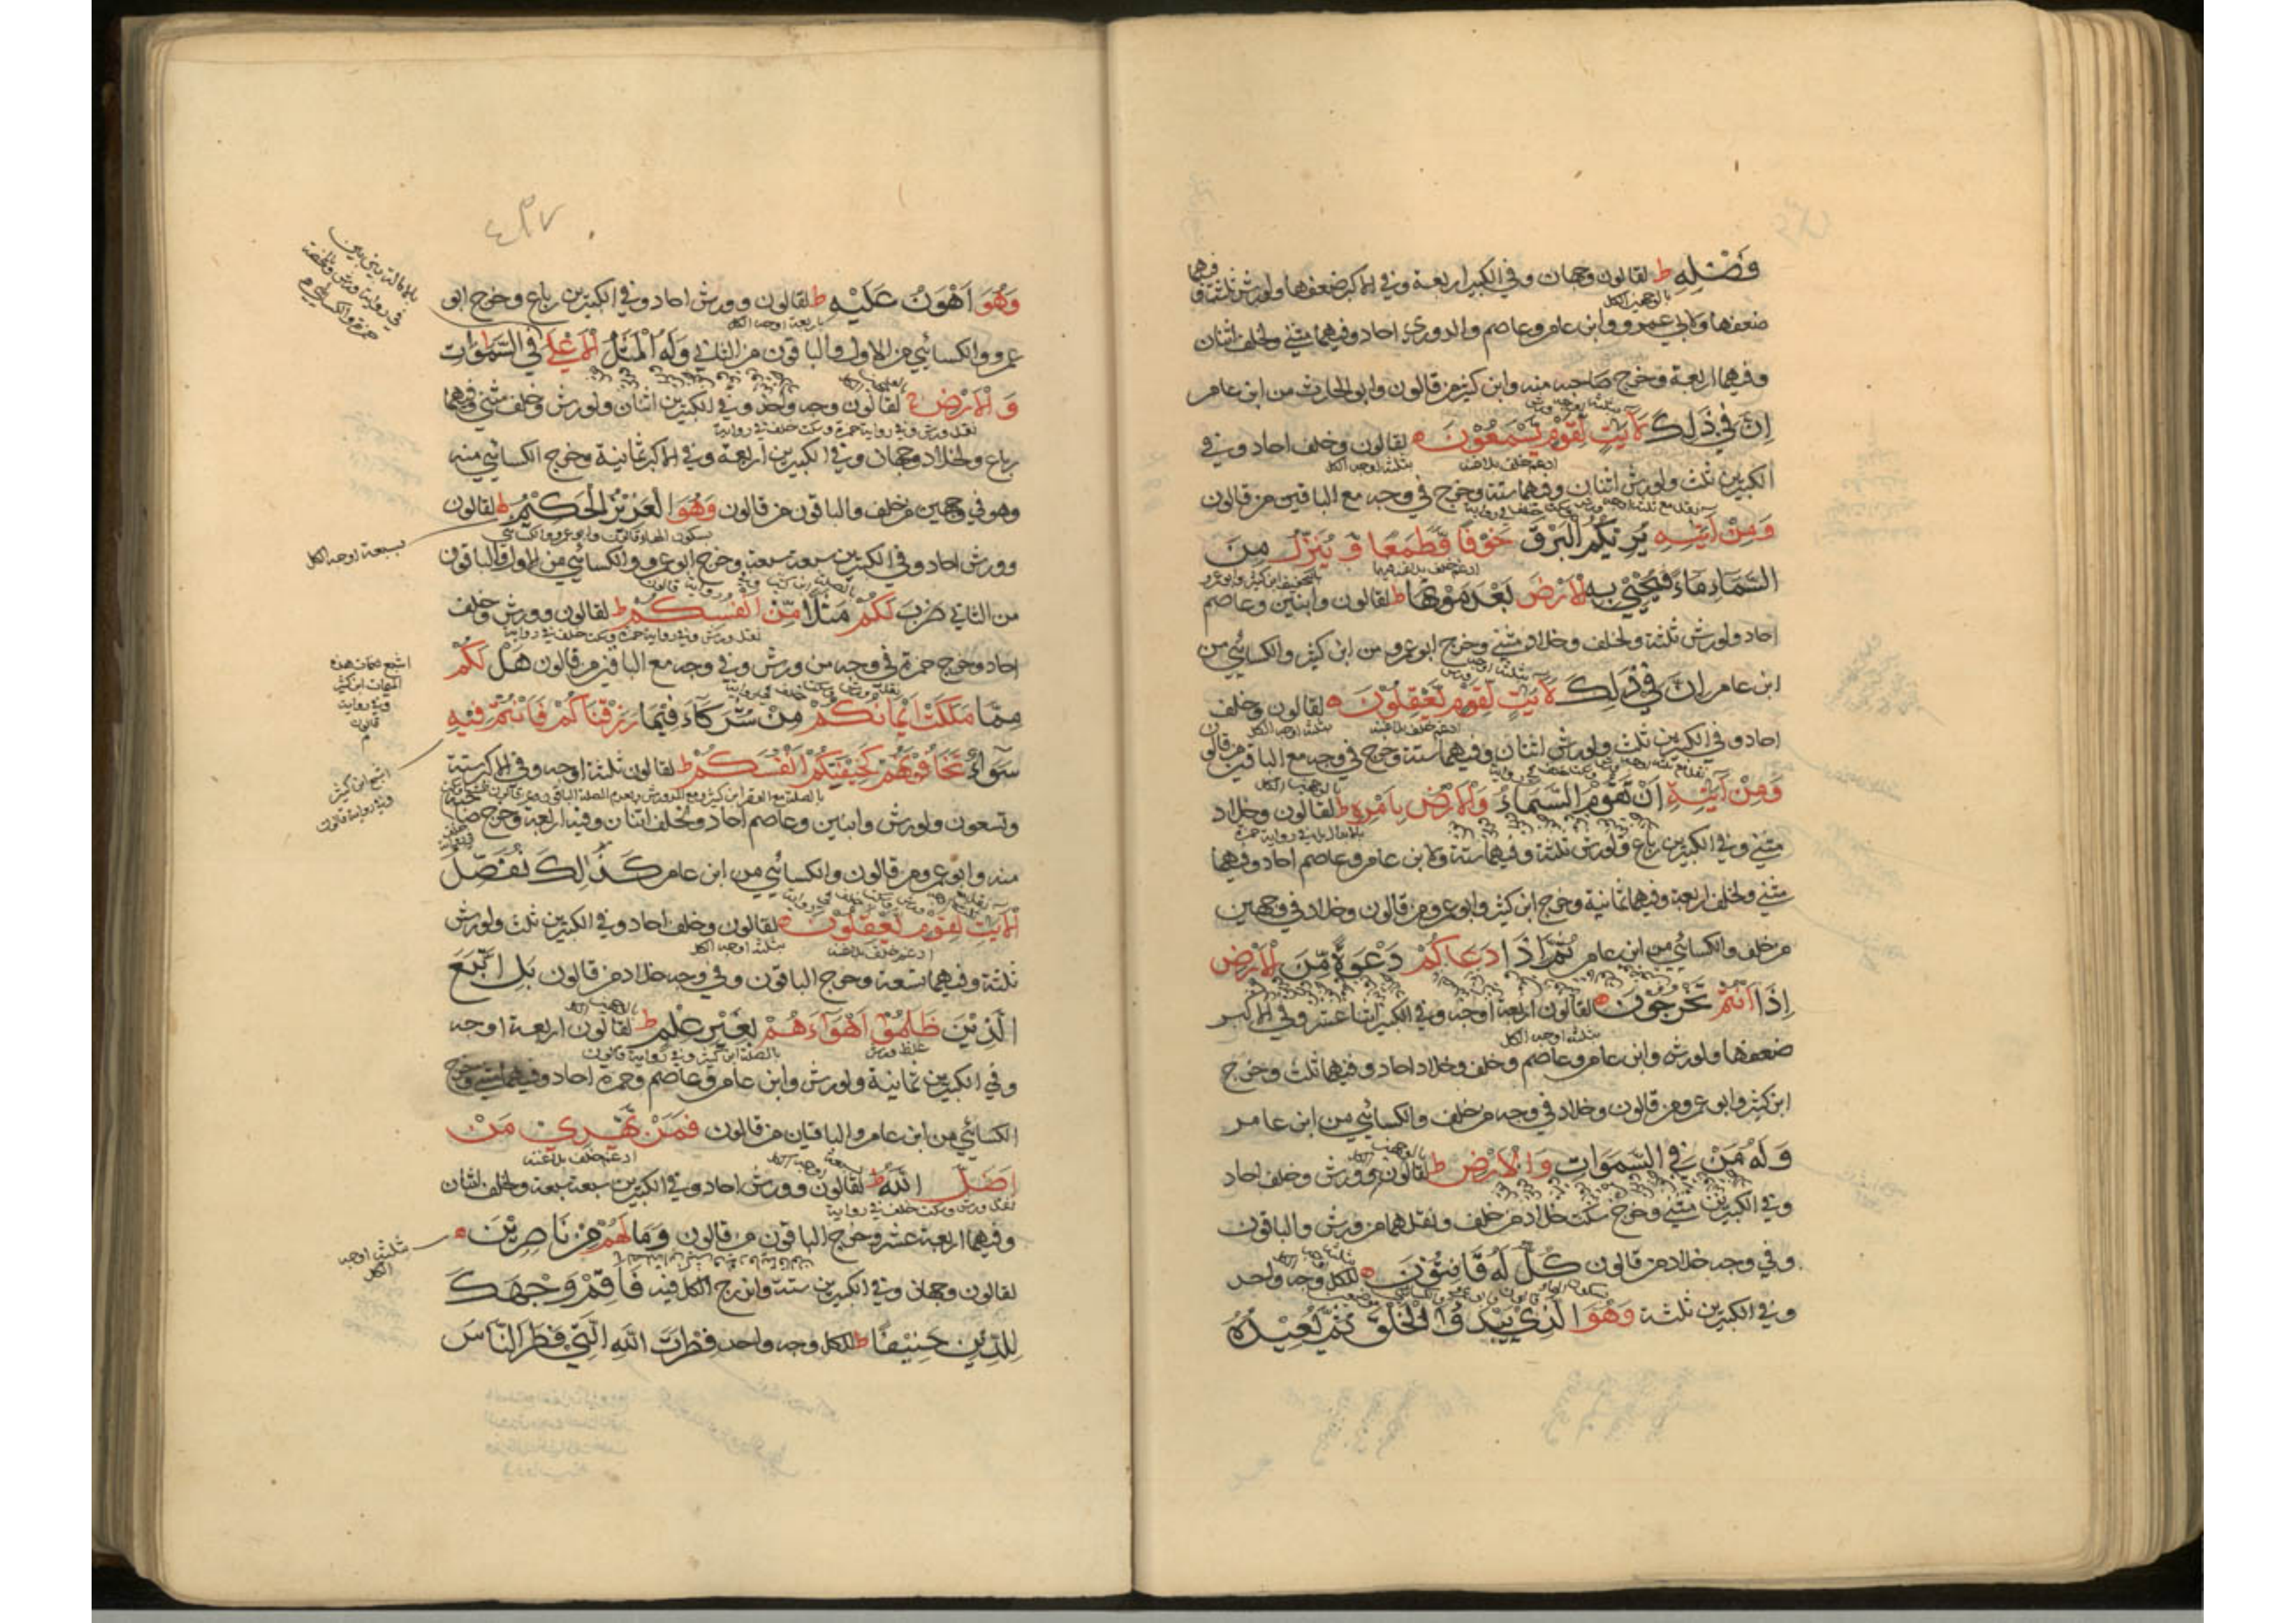 فَضْلِهِ ط لقالون وجهان وفي الكبير اربعة وفي الاكبر ضعفها ولورش ثلثة وفيهما
بالوجهين الكل
ضعفها ولابي عمرو وابن عامر وعاصم والدوري احاد وفيهما مثنى ولخلف اثنان
وفيهما اربعة وخرج صاحبه منه وابن كثير من قالون وابو الحارث من ابن عامر
اِنَّ فِي ذٰلِكَ لَاٰيٰتٍ لِقَوْمٍ يَسْمَعُوْنَ ه لقالون وخلف احاد وفي
ادغم خلف بلا غنة بثلثة اوجه الكل
الكبيرين ثلث ولورش اثنان وفيهما ستة وخرج في وجه مع الباقين من قالون
وَمِنْ اٰيٰتِهِ يُرِيْكُمُ الْبَرْقَ خَوْفًا وَّطَمَعًا وَّ يُنَزِّلُ مِنَ
السَّمَآءِ مَآءً فَيُحْيِي بِهِ الْاَرْضَ بَعْدَ مَوْتِهَا ط لقالون وابنين وعاصم
احاد ولورش ثلثة ولخلف وخلاد مثنى وخرج ابو عمرو من ابن كثير والكسائي من
ابن عامر اِنَّ فِي ذٰلِكَ لَاٰيٰتٍ لِّقَوْمٍ يَّعْقِلُوْنَ ه لقالون وخلف
ادغم خلف بلا غنة بثلثة اوجه الكل
احاد وفي الكبيرين ثلث ولورش اثنان وفيهما ستة وخرج في وجه مع الباقين من قالون
وَمِنْ اٰيٰتِهِ اَنْ تَقُوْمَ السَّمَآءُ وَالْاَرْضُ بِاَمْرِهِ ط لقالون وخلاد
مثنى وفي الكبيرين رباع ولورش ثلثة وفيهما ستة ولابن عامر وعاصم احاد وفيهما
مثنى ولخلف اربعة وفيهما ثمانية وخرج ابن كثير وابو عمرو من قالون وخلاد في وجهين
من خلف والكسائي من ابن عامر ثُمَّ اِذَا دَعَاكُمْ دَعْوَةً مِّنَ الْاَرْضِ
اِذَا اَنْتُمْ تَخْرُجُوْنَ ه لقالون اربعة اوجه وفي الكبير اثنا عشر وفي الاكبر
بثلثة اوجه الكل
ضعفها ولورش وابن عامر وعاصم وخلف وخلاد احاد وفيهما ثلث وخرج
ابن كثير وابو عمرو من قالون وخلاد في وجه من خلف والكسائي من ابن عامر
وَلَهُ مَنْ فِي السَّمٰوَاتِ وَالْاَرْضِ ط لقالون وورش وخلف احاد
وفي الكبيرين مثنى وخرج سكت خلاد من خلف ونقلهما من ورش والباقون
وفي وجه خلاد من قالون كُلٌّ لَّهُ قَانِتُوْنَ ه للكل وجه واحد
وفي الكبيرين ثلثة وَهُوَ الَّذِيْ يَبْدَؤُا الْخَلْقَ ثُمَّ يُعِيْدُهُ
٤٣٧
وَهُوَ اَهْوَنُ عَلَيْهِ ط لقالون وورش احاد وفي الكبيرين رباع وخرج ابو
باربعة اوجه الكل
عمرو والكسائي من الاول والباقون من الثاني وَلَهُ الْمَثَلُ الْاَعْلٰى فِي السَّمٰوَاتِ
وَالْاَرْضِ ج لقالون وجه واحد وفي الكبيرين اثنان ولورش وخلف مثنى وفيهما
نقل ورش وفي رواية حمزة وسكت خلف في رواية
رباع ولخلاد وجهان وفي الكبيرين اربعة وفي الاكبر ثمانية وخرج الكسائي منه
وهو في وجهين من خلف والباقون من قالون وَهُوَ الْعَزِيْزُ الْحَكِيْمُ ط لقالون
بسكون الهاء قالون وابو عمرو والكسائي
بسبعة اوجه الكل
وورش احاد وفي الكبيرين سبعة سبعة وخرج ابو عمرو والكسائي من الاول والباقون
من الثاني ضَرَبَ لَكُمْ مَثَلًا مِّنْ اَنْفُسِكُمْ ط لقالون وورش وخلف
نقل ورش وفي رواية حمزة وسكت خلف في رواية
احاد وخرج حمزة في وجه من ورش وفي وجه مع الباقين من قالون هَلْ لَكُمْ
اشبع ضمات هذه
الميمات ابن كثير
وفي رواية
قالون
مِمَّا مَلَكَتْ اَيْمَانُكُمْ مِنْ شُرَكَآءَ فِيْمَا رَزَقْنَاكُمْ فَاَنْتُمْ فِيْهِ
سَوَآءٌ تَخَافُوْنَهُمْ كَخِيْفَتِكُمْ اَنْفُسَكُمْ ط لقالون ثلثة اوجه وفي الاكبر ستة
اشبع ابن كثير
وفي رواية قالون
وتسعون ولورش وابنين وعاصم احاد ولخلف اثنان وفيه اربعة وخرج صاحبه
منه وابو عمرو من قالون والكسائي من ابن عامر كَذٰلِكَ نُفَصِّلُ
الْاٰيٰتِ لِقَوْمٍ يَّعْقِلُوْنَ ه لقالون وخلف احاد وفي الكبيرين ثلث ولورش
ادغم خلف بلا غنة بثلثة اوجه الكل
ثلثة وفيهما تسعة وخرج الباقون وفي وجه خلاد من قالون بَلِ اتَّبَعَ
الَّذِيْنَ ظَلَمُوْٓا اَهْوَآءَهُمْ بِغَيْرِ عِلْمٍ ط لقالون اربعة اوجه
غلظ ورش بالصلة ابن كثير وفي رواية قالون
وفي الكبيرين ثمانية ولورش وابن عامر وعاصم وحمزة احاد وفيهما مثنى وخرج
الكسائي من ابن عامر والباقيان من قالون فَمَنْ يَّهْدِيْ مَنْ
ادغم خلف بلا غنة
اَضَلَّ اللّٰهُ ط لقالون وورش احاد وفي الكبيرين سبعة سبعة ولخلف اثنان
نقل ورش وسكت خلف في رواية
وفيهما اربعة عشر وخرج الباقون من قالون وَمَا لَهُمْ مِنْ نَاصِرِيْنَ ه
بثلثة اوجه
الكل
لقالون وجهان وفي الكبيرين ستة واندرج الكل فيه فَاَقِمْ وَجْهَكَ
لِلدِّيْنِ حَنِيْفًا ط للكل وجه واحد فِطْرَتَ اللّٰهِ الَّتِيْ فَطَرَ النَّاسَ